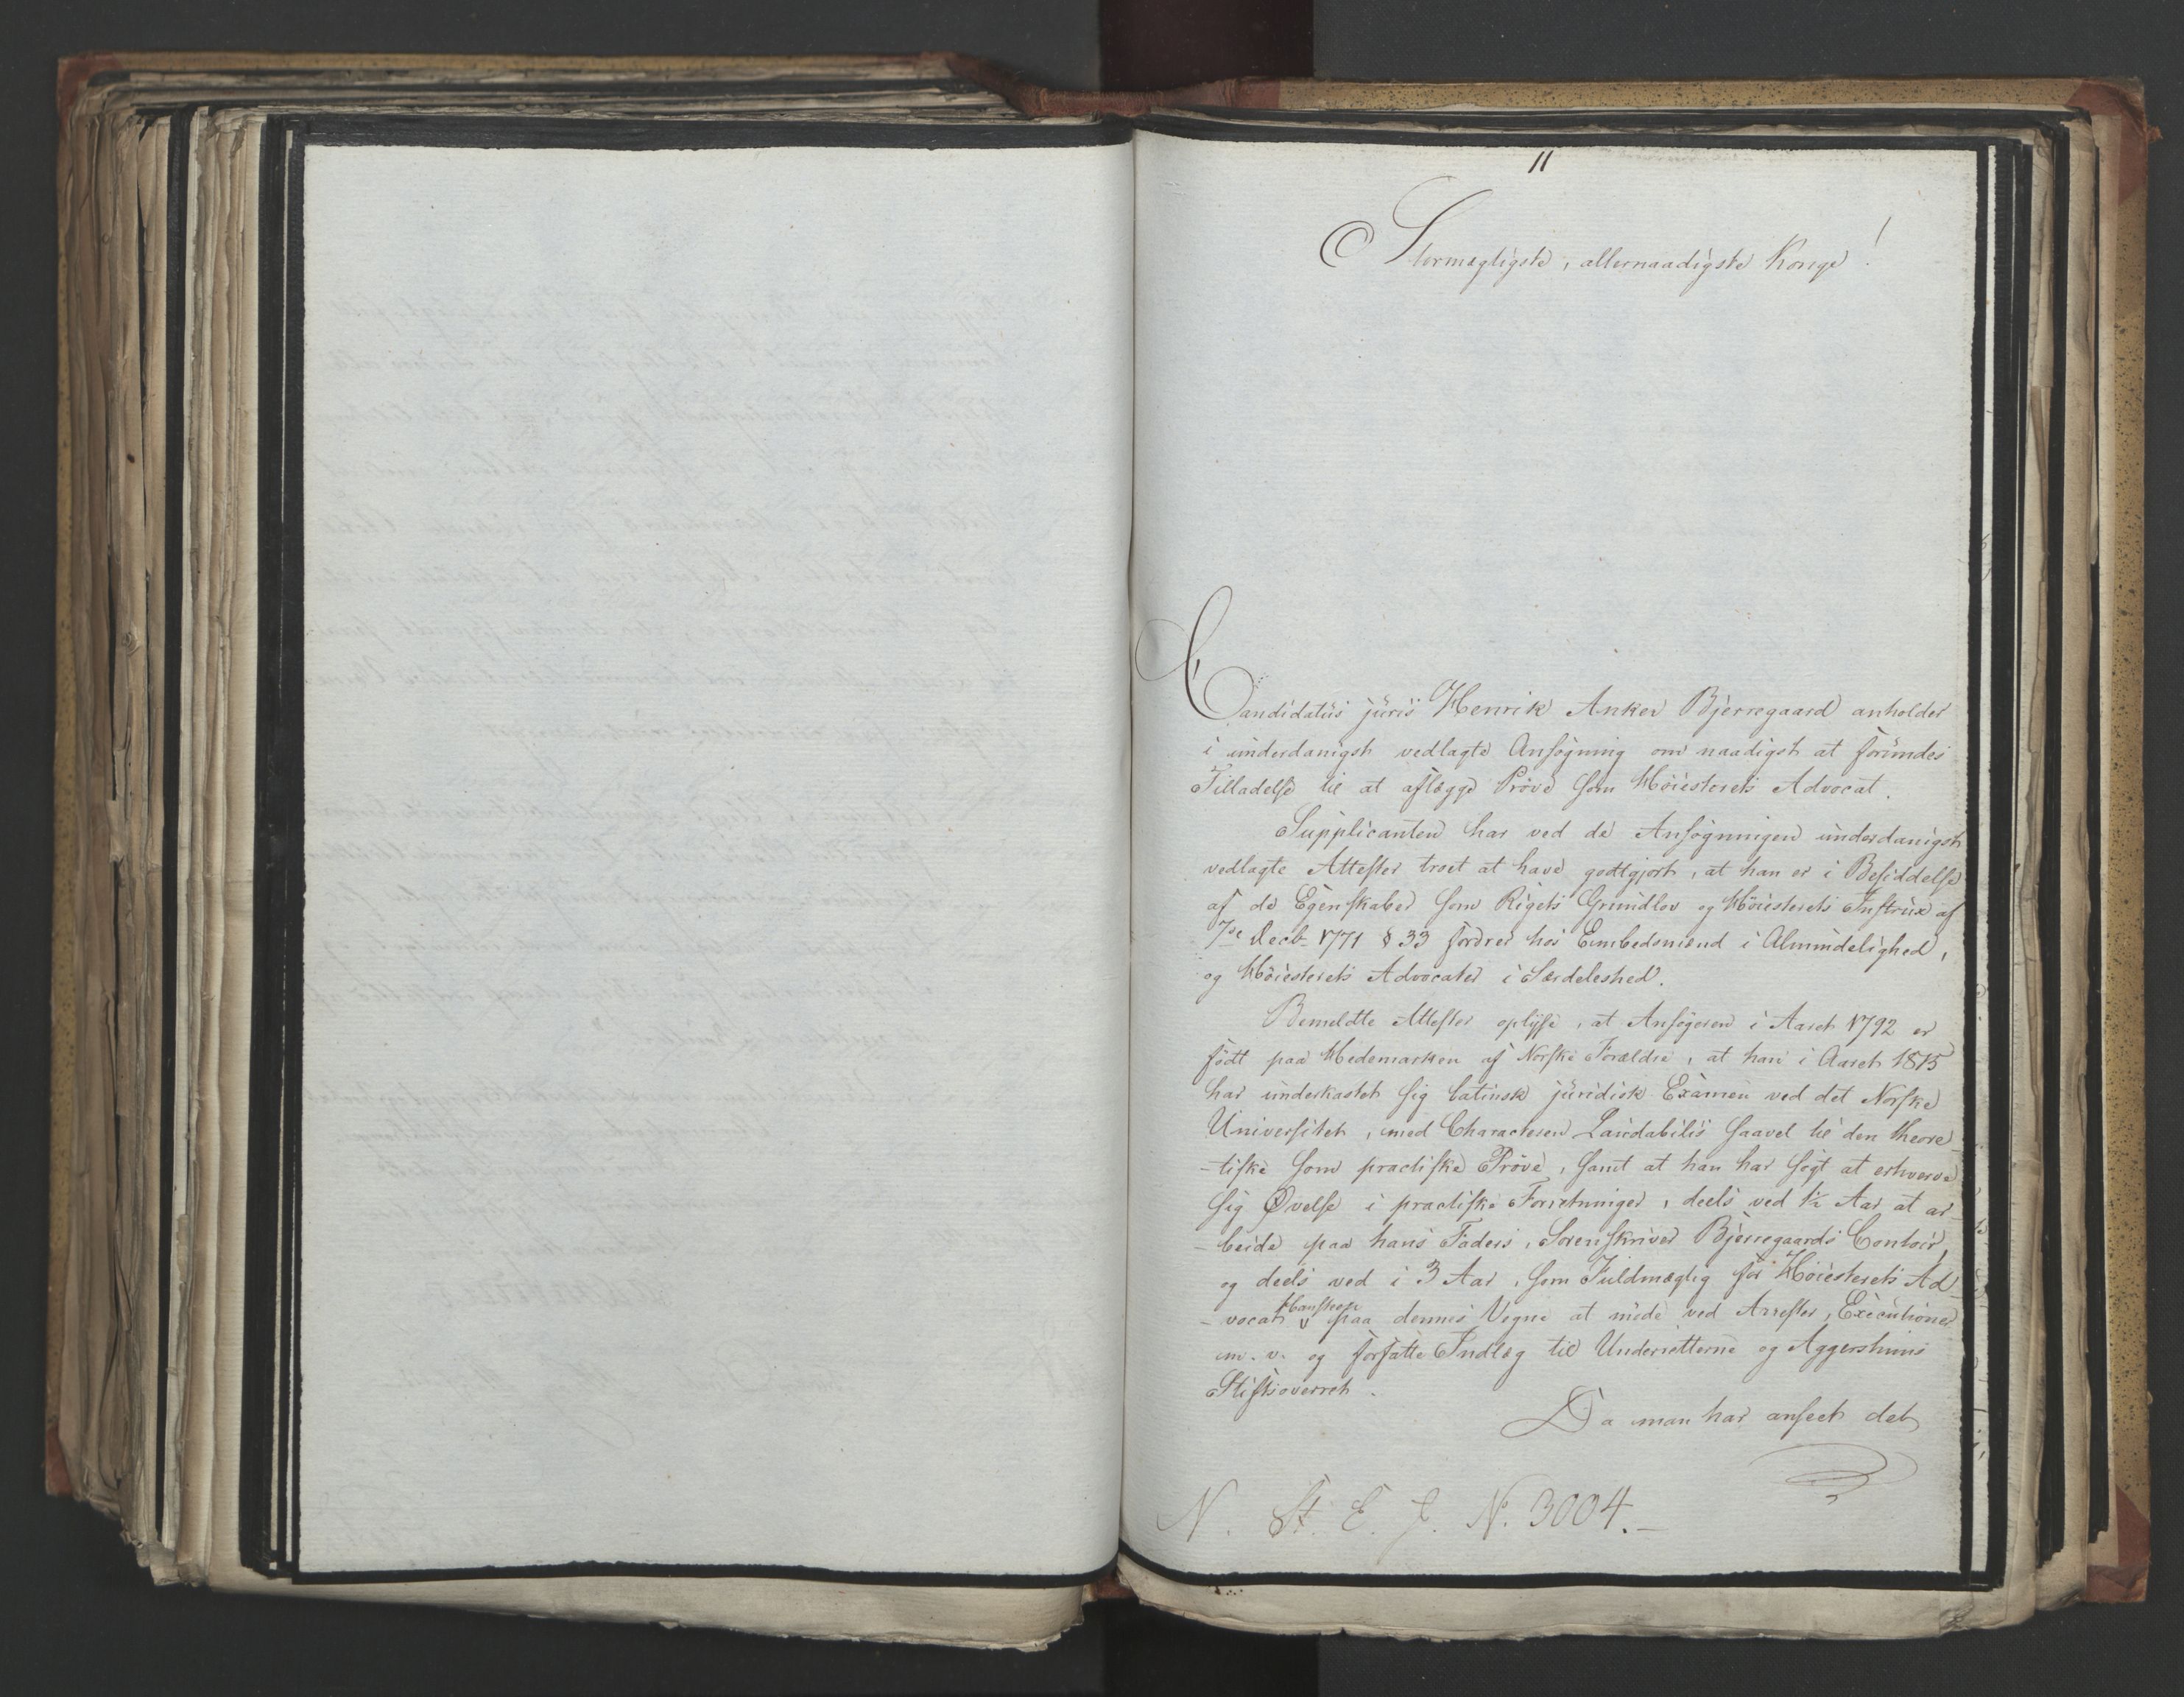 11
Stormægtigste, allernaadigste Konge!
Candidatus juris Henrik Anker Bjerregaard anholder
i underdanigst vedlagte Ansøgning om naadigst at forundes
Tilladelse til at aflægge Prøve som Höiesterets Advocat.
Supplicanten har ved de Ansøgningen underdanigst
vedlagte Attester troet at have godtgjort, at han er i Besiddelse
af de Egenskaber som Rigets Grundlov og Höiesterets Instrux af
7de Decbr 1771 § 33 fordrer hos Embedsmænd i Almindelighed,
og Höiesterets Advocater i Særdeleshed.
Bemeldte Attester oplyse, at Ansøgeren i Aaret 1792 er
født paa Hedemarken af Norske Forældre, at han i Aaret 1815
har underkastet sig latinsk juridisk Examen ved det Norske
Universitet, med Characteren Laudabilis saavel til den theore
-tiske som practiske Prøve, samt at han har søgt at erhverve
sig Øvelse i practiske Forretninger, deels ved 1½ Aar at ar-
-beide paa hans Faders, Sorenskriver Bjerregaards Contoir,
og deels ved i 3 Aar, som Fuldmægtig for Höiesterets Ad-
-vocat Hansteen paa dennes Vegne at møde ved Arrester, Executioner
m. v. og forfatte Indlæg til Underretterne og Aggershuus
Stiftsoverret.
Da man har anseet det
N. St. E. J. N. 3004.-